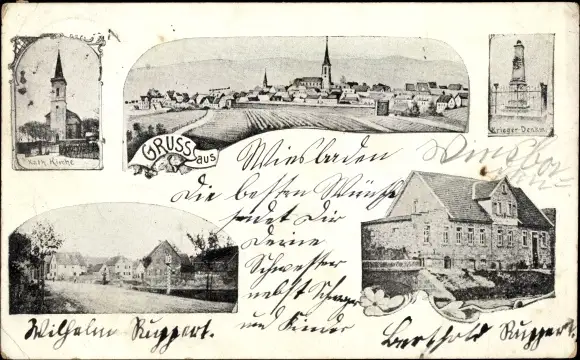 Kath. Kirche
Krieger-Denkm.
GRUSS aus
Wiesbaden
Die besten Wünsche
sendet Dir
Deine
Schwester
nebst Schwager
und Kinder
Wilhelm Ruppert.
Berthold Ruppert.